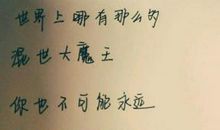 世界上哪有那么的
混世大魔王
你也不可能永远